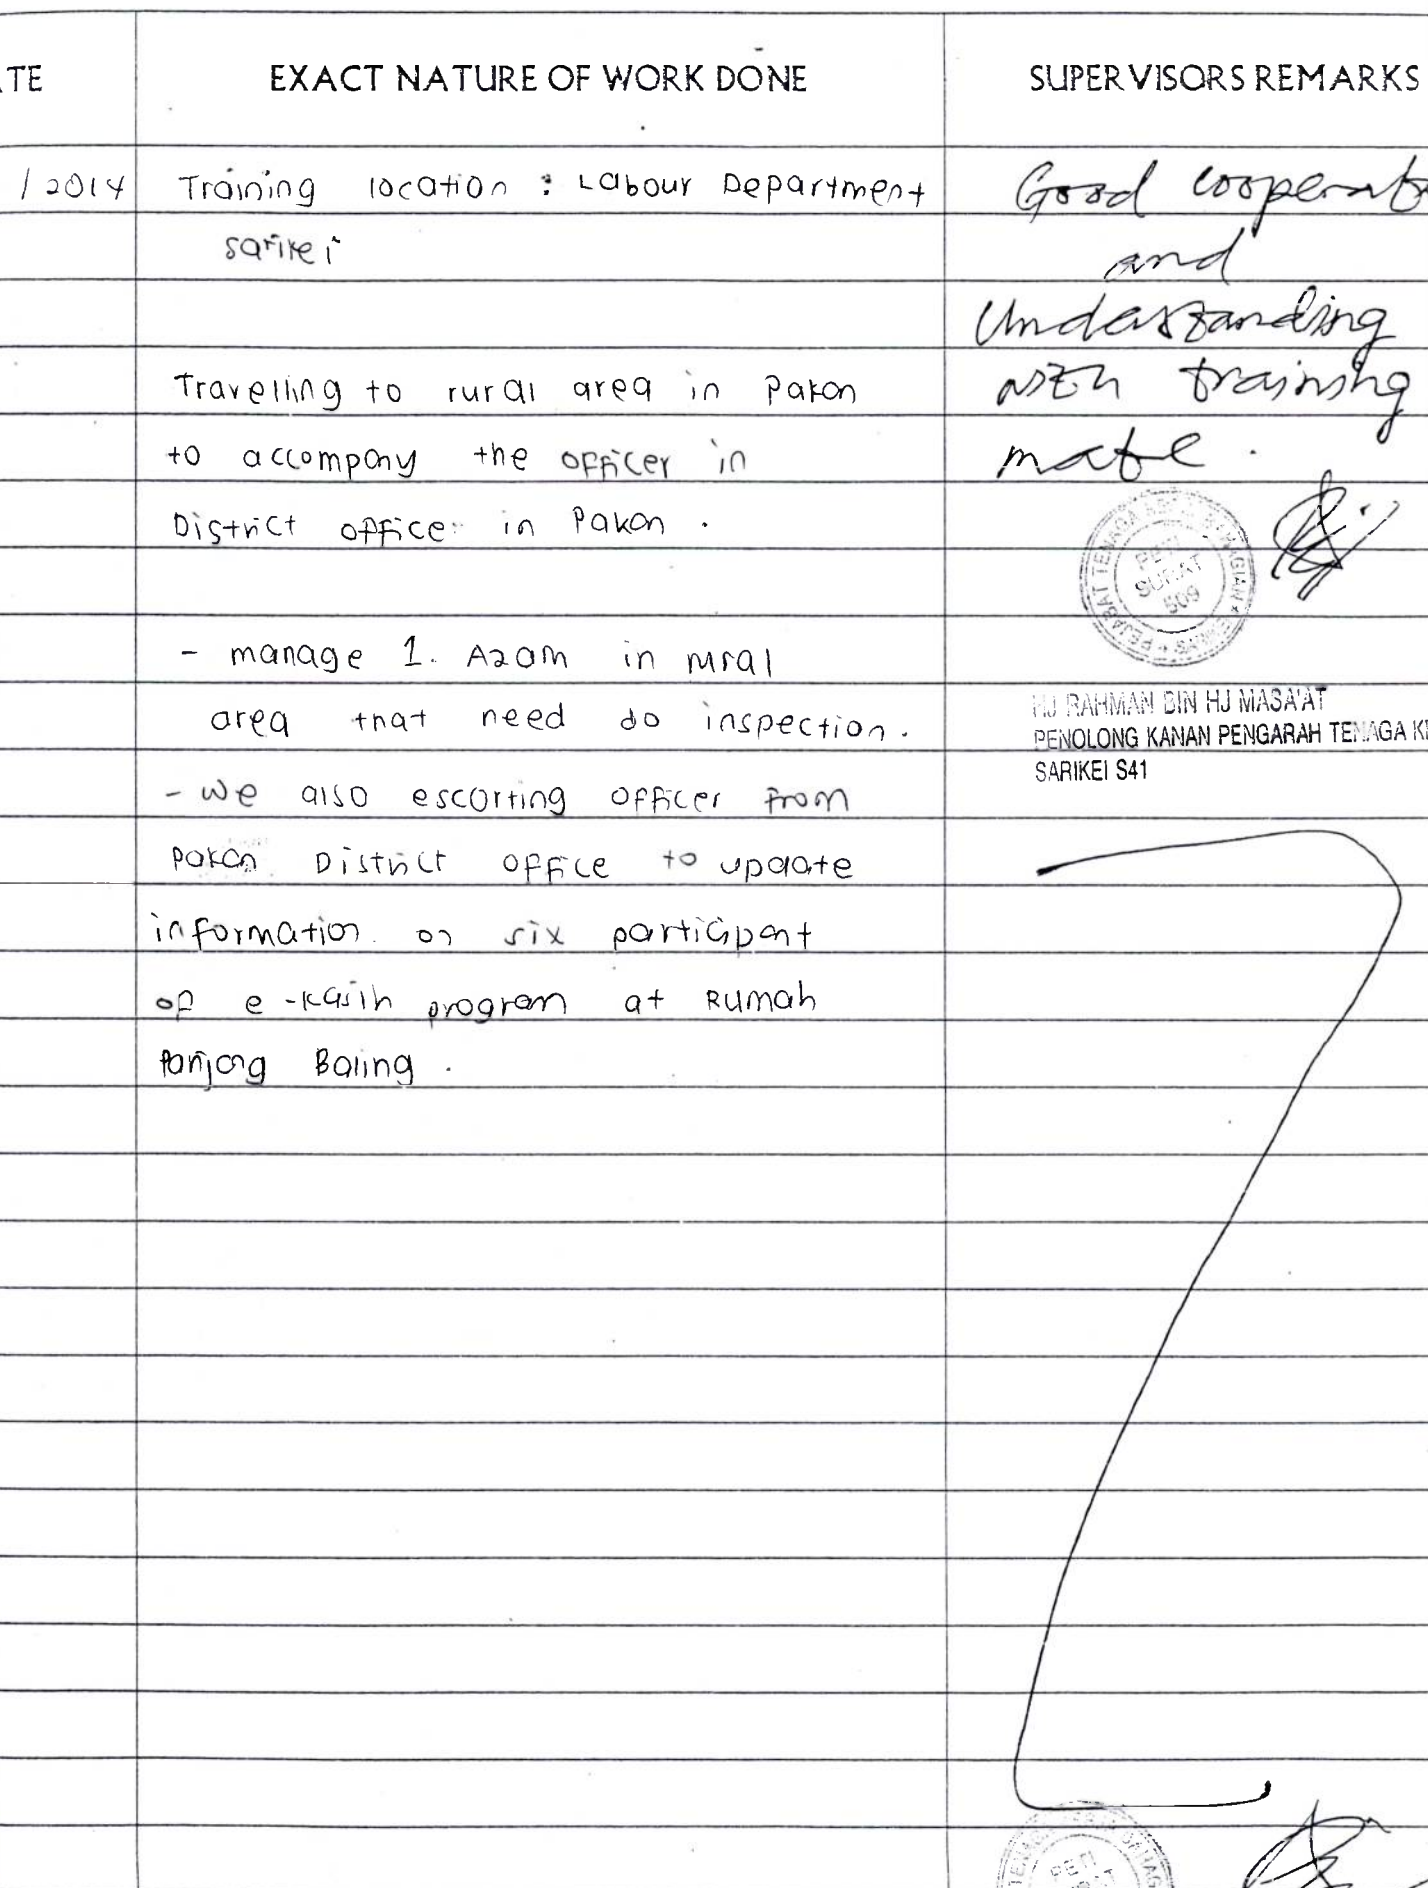 TE
EXACT NATURE OF WORK DONE
SUPERVISORS REMARKS
/2014
Training location : Labour Department
sarikei
Travelling to rural area in Pakan
to accompany the officer in
District office in Pakan .
- manage 1. Azam in rural
area that need do inspection.
- we also escorting officer from
pakan District office to update
information on six participant
of e-Kasih program at Rumah
Panjang Baling .
Good cooperat
and
Understanding
with training
mate .
PEJABAT TENAGA
PETI
SURAT
509
HJ RAHMAN BIN HJ MASA'AT
PENOLONG KANAN PENGARAH TENAGA KE
SARIKEI S41
PETI